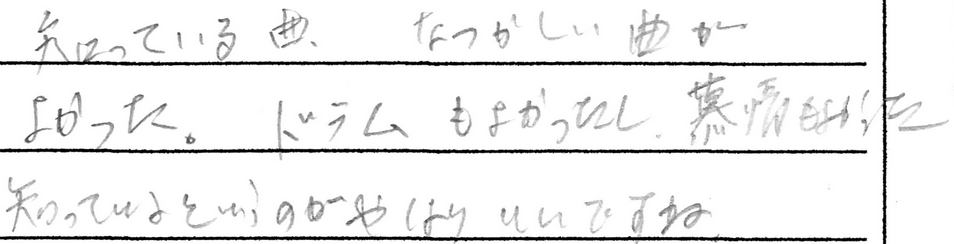 知っている曲、なつかしい曲が
よかった。ドラムもよかったし、慕情もよかった
知っているというのがやはりいいですね